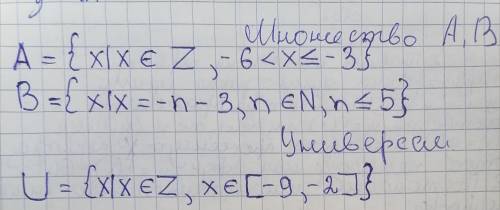 Множество A, B
A = { x | x ∈ Z, -6 < x ≤ -3}
B = { x | x = -n - 3, n ∈ N, n ≤ 5}
Универсал
U = {x | x ∈ Z, x ∈ [-9, -2]}